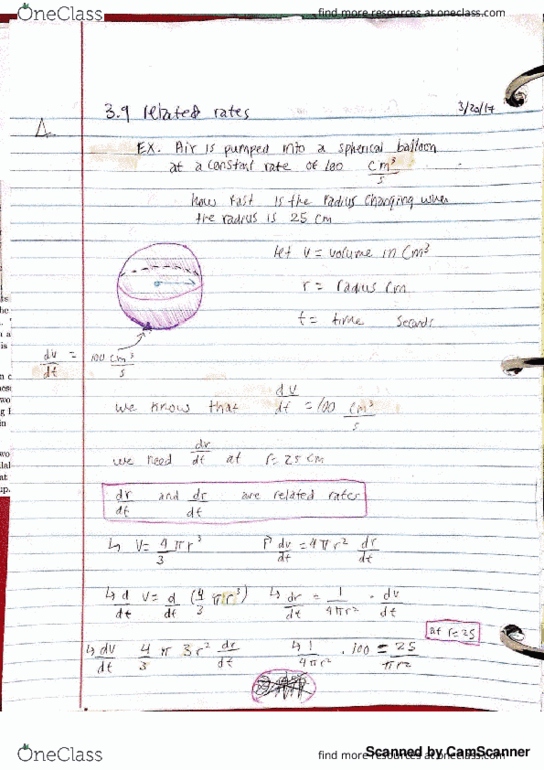 OneClass
find more resources at oneclass.com
3.9 related rates
3/20/17
EX. Air is pumped into a spherical balloon
at a constant rate of 100 cm³/s
how fast is the radius changing when
the radius is 25 cm
let V = volume in cm³
r = radius cm
t = time seconds
dv/dt = 100 cm³/s
we know that dv/dt = 100 cm³/s
we need dr/dt at r = 25 cm
dr/dt and dr/dt are related rates
↳ V = 4/3 πr³
dv/dt = 4πr² dr/dt
↳ d/dt V = d/dt (4/3 πr³)
↳ dr/dt = 1/4πr² · dv/dt
at r = 25
↳ dv/dt 4/3 π 3r² dr/dt
↳ 1/4πr² · 100 = 25/πr²
Scanned by CamScanner
OneClass
find more resources at oneclass.com